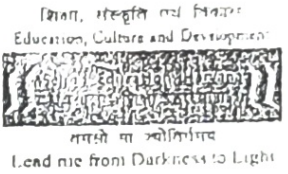 शिक्षा, संस्कृति एवं विकास
Education, Culture and Development
तमसो मा ज्योतिर्गमय
Lead me from Darkness to Light